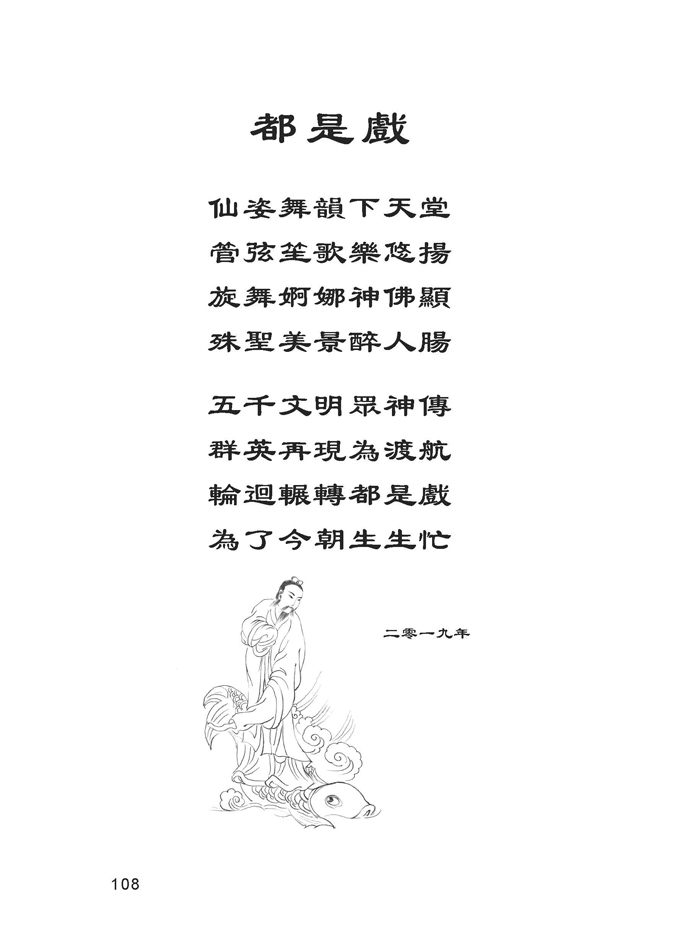 都是戲
仙姿舞韻下天堂
管弦笙歌樂悠揚
旋舞婀娜神佛顯
殊聖美景醉人腸
五千文明眾神傳
群英再現為渡航
輪迴輾轉都是戲
為了今朝生生忙
二零一九年
108